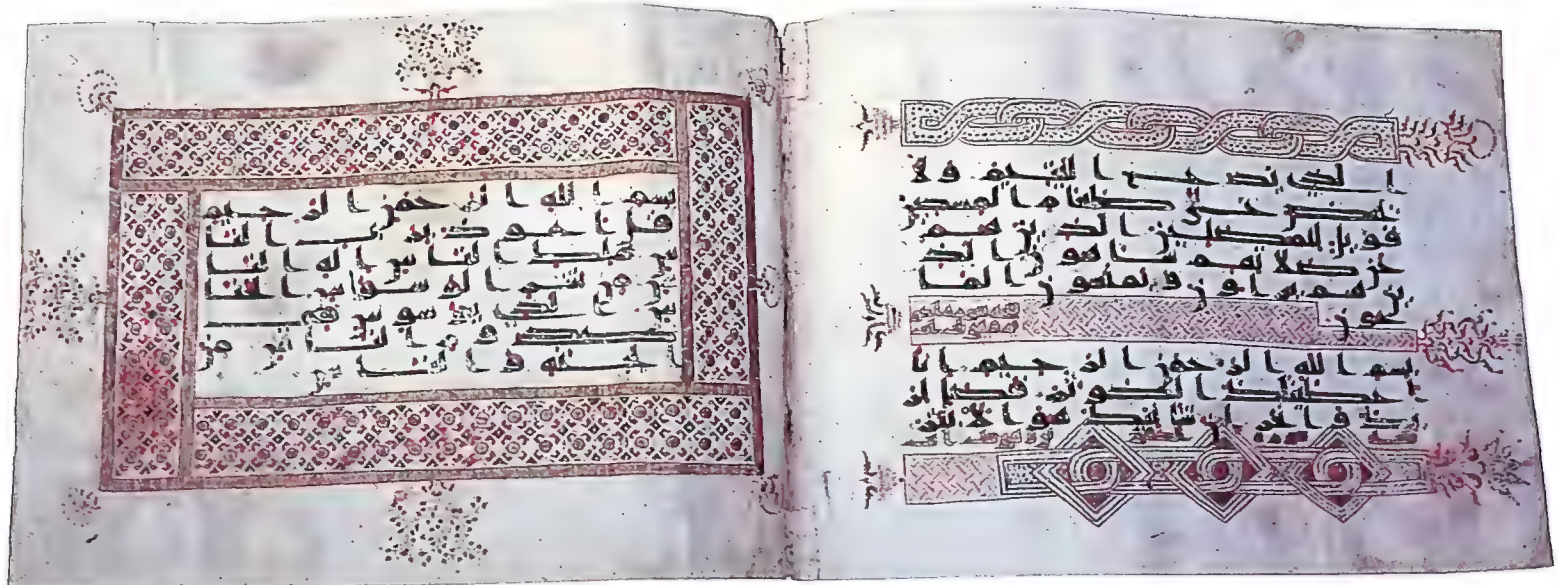 الذى يدع اليتيم ولا
يحض على طعام المسكين
فويل للمصلين الذين هم
عن صلاتهم ساهون الذ
ين هم يراون ويمنعون الما
عون
بسم الله الرحمن الرحيم انا
اعطينك الكوثر فصل لر
بك وانحر ان شانيك هو الابتر
بسم الله الرحمن الرحيم
قل اعوذ برب النا
س ملك الناس اله النا
س من شر الوسواس الخنا
س الذى يوسوس فى
صدور الناس من
الجنة والناس